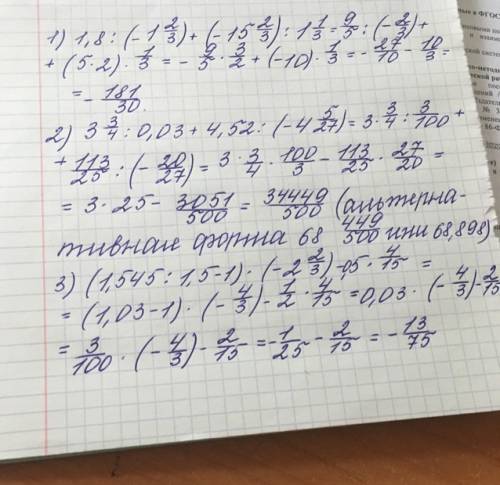 1) 1,8 : (-1 2/3) + (-15 2/3) : 1 1/3 = 9/5 : (-2/3) +
+ (5·2) · 1/3 = - 9/5 · 3/2 + (-10) · 1/3 = - 27/10 - 10/3 =
= - 181/30.
2) 3 3/4 : 0,03 + 4,52 : (-4 5/27) = 3 · 3/4 : 3/100 +
+ 113/25 : (- 20/27) = 3 · 3/4 · 100/3 - 113/25 · 27/20 =
= 3 · 25 - 3051/500 = 34449/500 (альтерна-
тивная форма 68 449/500 или 68,898)
3) (1,545 : 1,5 - 1) · (-2 2/3) - 0,5 · 4/15 =
= (1,03 - 1) · (- 4/3) - 1/2 · 4/15 = 0,03 · (- 4/3) - 2/15
= 3/100 · (- 4/3) - 2/15 = - 1/25 - 2/15 = - 13/75